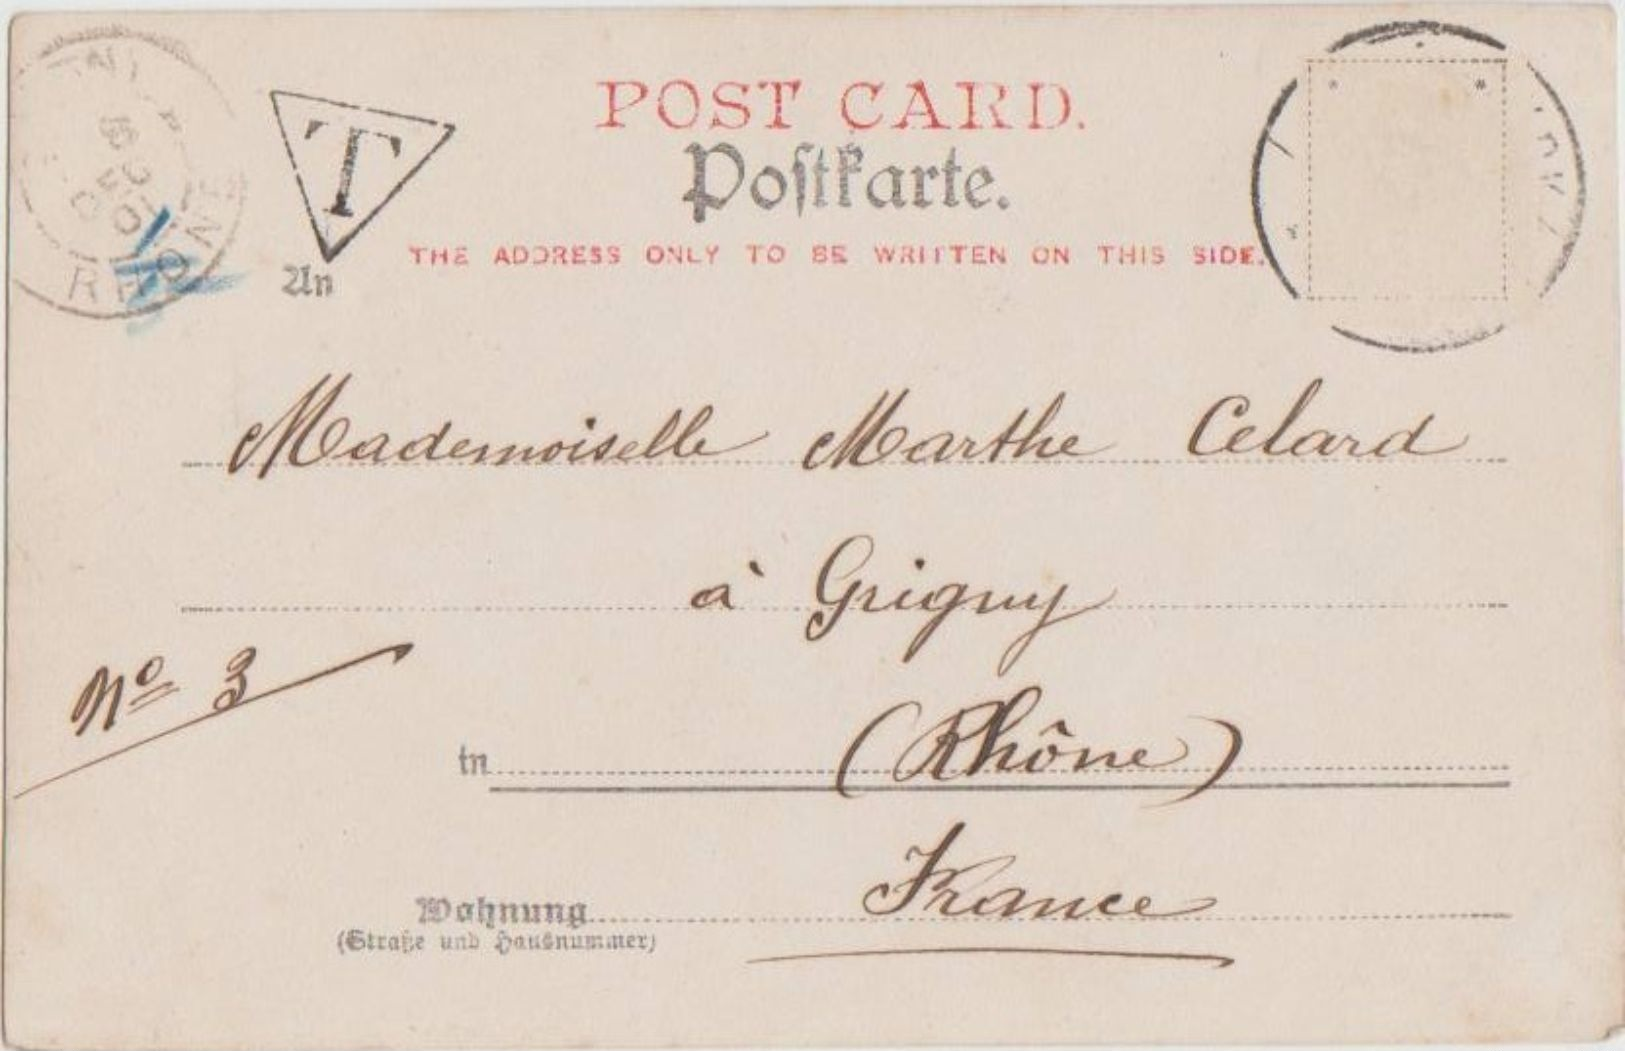 T
POST CARD.
Postkarte.
THE ADDRESS ONLY TO BE WRITTEN ON THIS SIDE.
An
RHONE
Mademoiselle Marthe Celard
à Grigny
No 3
in (Rhône)
France
Wohnung
(Straße und Hausnummer)